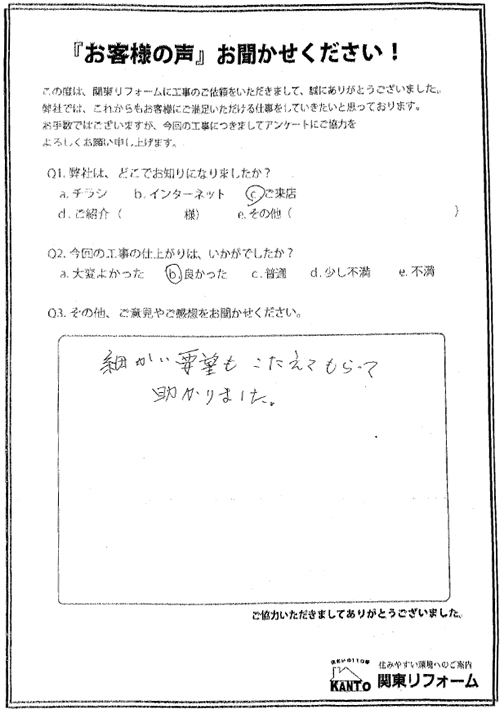 『お客様の声』お聞かせください！
この度は、関東リフォームに工事のご依頼をいただきまして、誠にありがとうございました。
弊社では、これからもお客様にご満足いただける仕事をしていきたいと思っております。
お手数ではございますが、今回の工事につきましてアンケートにご協力を
よろしくお願い申し上げます。
Q1. 弊社は、どこでお知りになりましたか？
a. チラシ b. インターネット c. ご来店
d. ご紹介（ 様） e. その他（ ）
Q2. 今回の工事の仕上がりは、いかがでしたか？
a. 大変よかった b. 良かった c. 普通 d. 少し不満 e. 不満
Q3. その他、ご意見やご感想をお聞かせください。
細かい要望も こたえてもらって
助かりました。
ご協力いただきましてありがとうございました。
住まいの110番
KANTO
住みやすい環境へのご案内
関東リフォーム